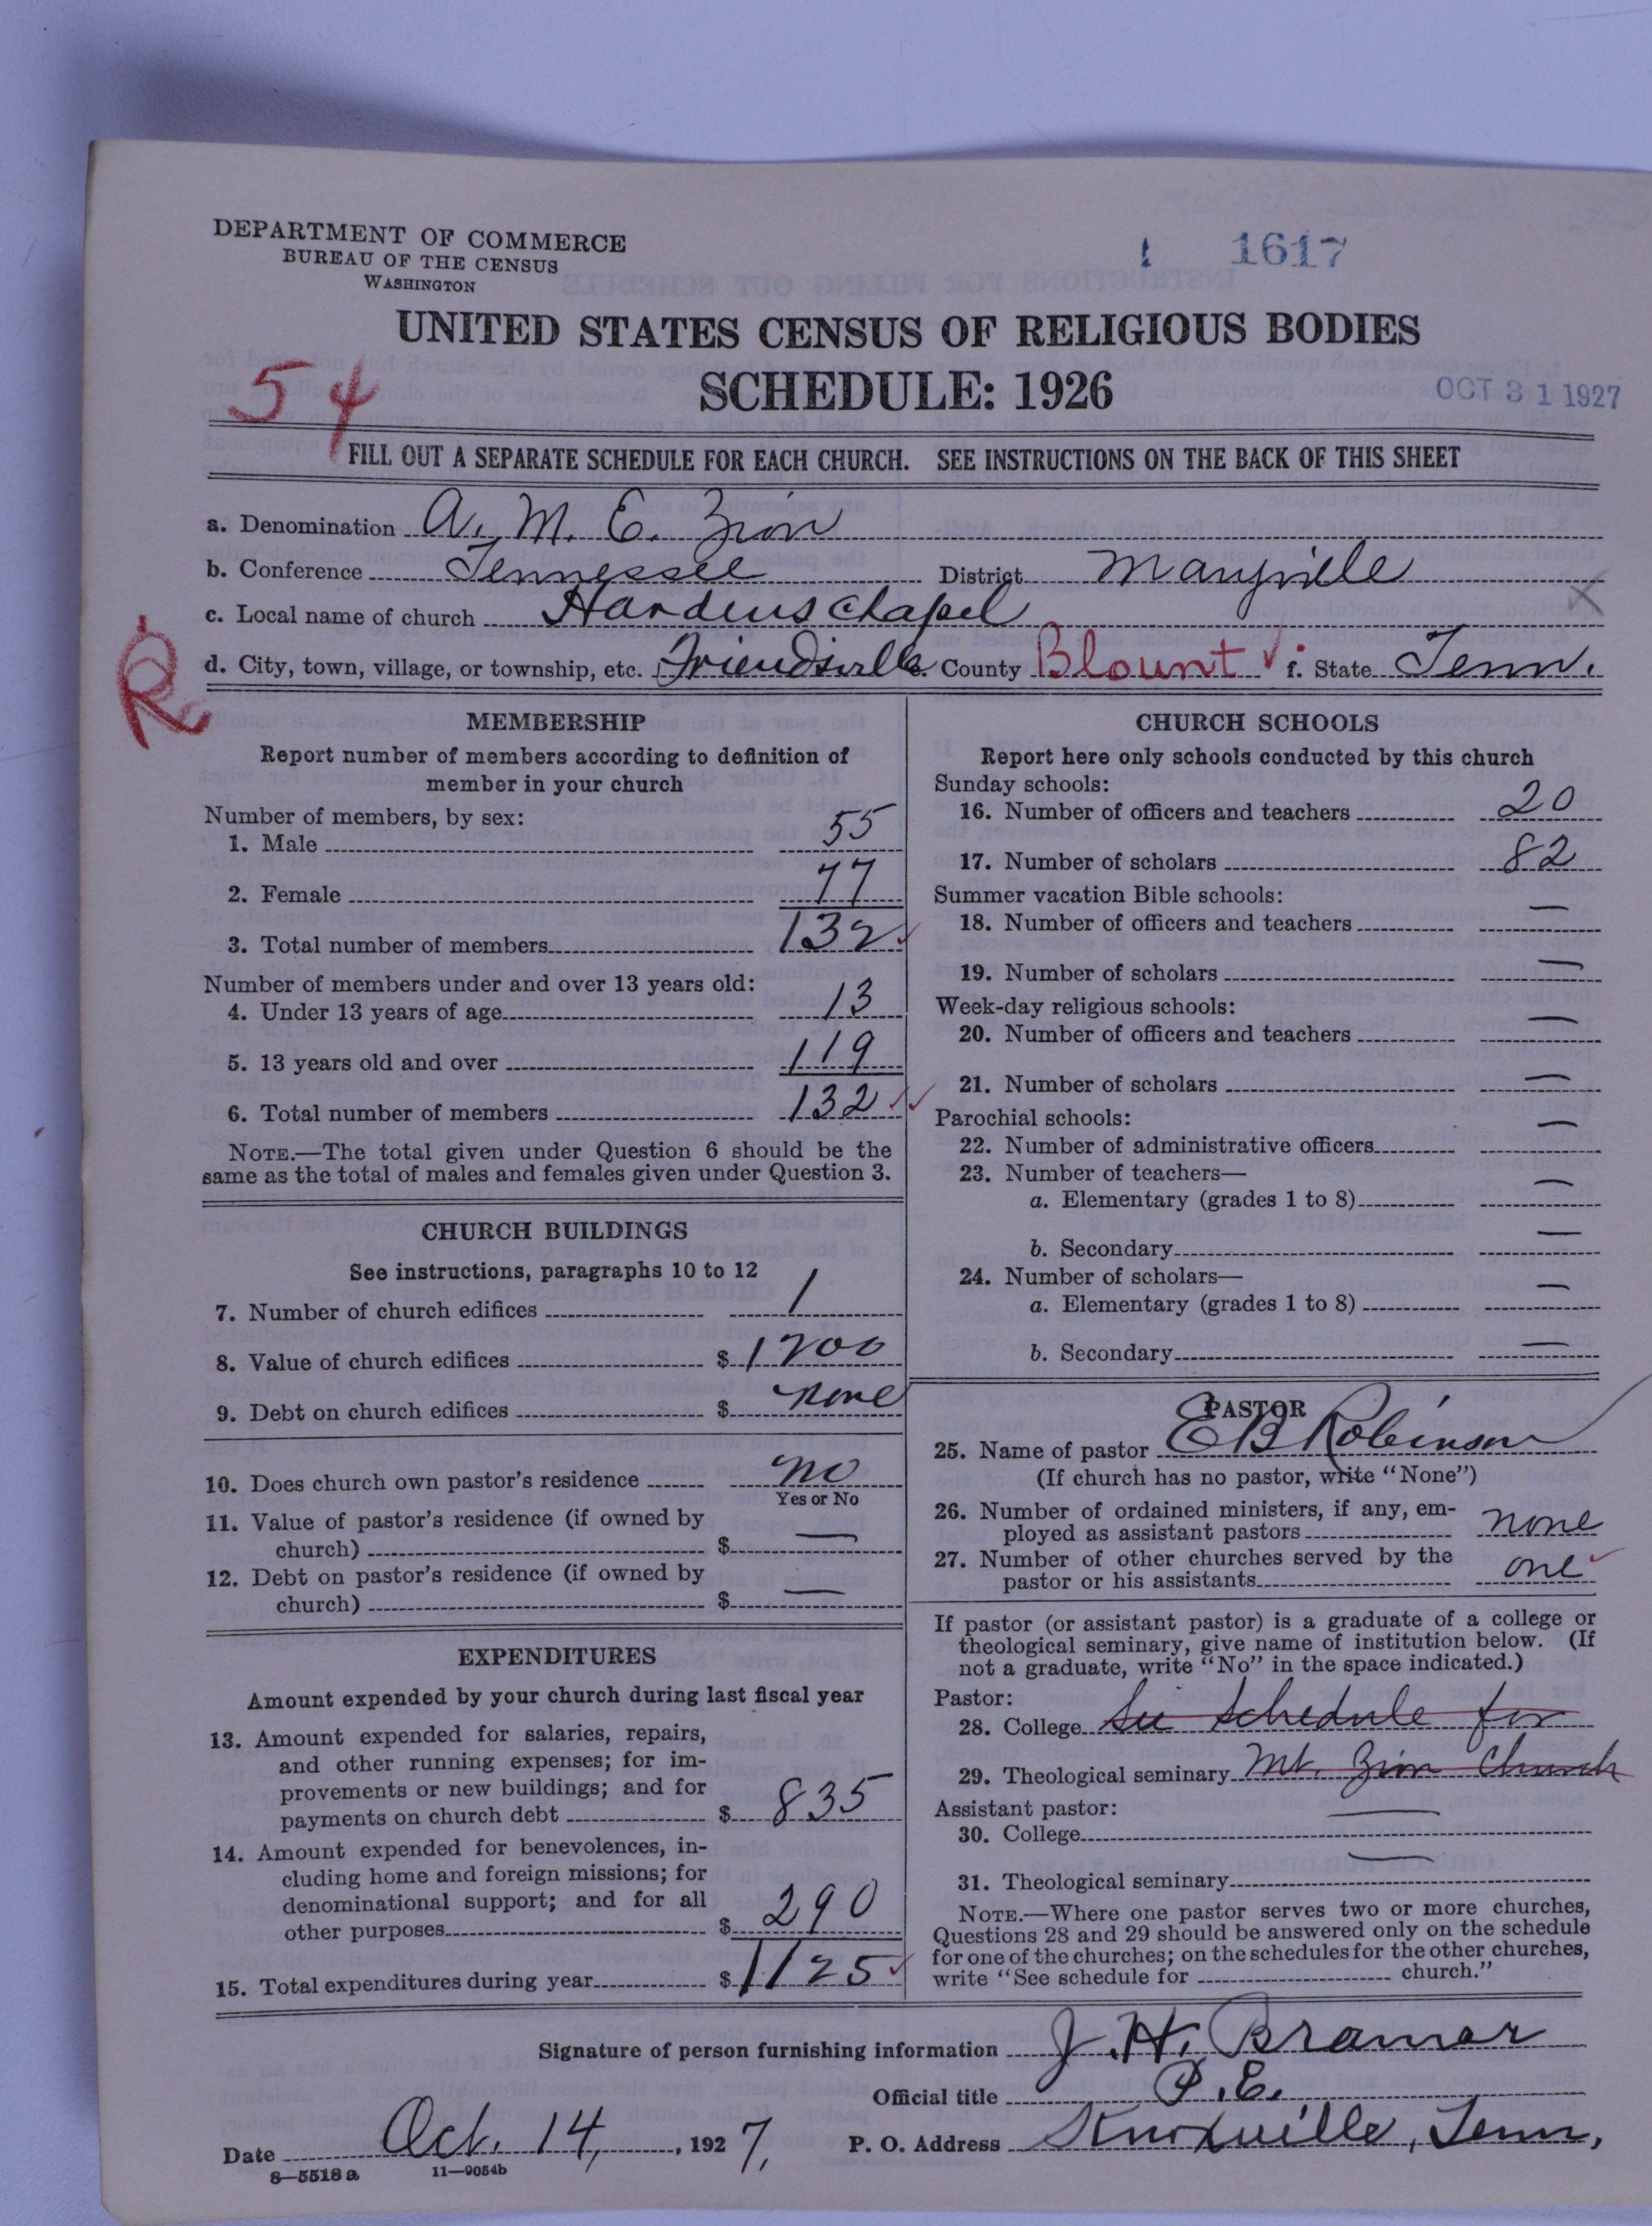 DEPARTMENT OF COMMERCE
BUREAU OF THE CENSUS
WASHINGTON
1 1617
UNITED STATES CENSUS OF RELIGIOUS BODIES
SCHEDULE: 1926
54
OCT 31 1927
FILL OUT A SEPARATE SCHEDULE FOR EACH CHURCH. SEE INSTRUCTIONS ON THE BACK OF THIS SHEET
a. Denomination A. M. E. Zion
b. Conference Tennessee District Maryville
c. Local name of church Hardens Chapel
d. City, town, village, or township, etc. Friendsville e. County Blount f. State Tenn.
MEMBERSHIP
Report number of members according to definition of
member in your church
Number of members, by sex:
1. Male 55
2. Female 77
3. Total number of members 132
Number of members under and over 13 years old:
4. Under 13 years of age 13
5. 13 years old and over 119
6. Total number of members 132
NOTE.—The total given under Question 6 should be the
same as the total of males and females given under Question 3.
CHURCH BUILDINGS
See instructions, paragraphs 10 to 12
7. Number of church edifices 1
8. Value of church edifices $ 1200
9. Debt on church edifices $ none
10. Does church own pastor's residence no
Yes or No
11. Value of pastor's residence (if owned by
church) $ —
12. Debt on pastor's residence (if owned by
church) $ —
EXPENDITURES
Amount expended by your church during last fiscal year
13. Amount expended for salaries, repairs,
and other running expenses; for im-
provements or new buildings; and for
payments on church debt $ 835
14. Amount expended for benevolences, in-
cluding home and foreign missions; for
denominational support; and for all
other purposes $ 290
15. Total expenditures during year $ 1125
CHURCH SCHOOLS
Report here only schools conducted by this church
Sunday schools:
16. Number of officers and teachers 20
17. Number of scholars 82
Summer vacation Bible schools:
18. Number of officers and teachers —
19. Number of scholars —
Week-day religious schools:
20. Number of officers and teachers —
21. Number of scholars —
Parochial schools:
22. Number of administrative officers —
23. Number of teachers—
a. Elementary (grades 1 to 8) —
b. Secondary —
24. Number of scholars—
a. Elementary (grades 1 to 8) —
b. Secondary —
PASTOR
25. Name of pastor E B Robinson
(If church has no pastor, write "None")
26. Number of ordained ministers, if any, em-
ployed as assistant pastors none
27. Number of other churches served by the
pastor or his assistants one
If pastor (or assistant pastor) is a graduate of a college or
theological seminary, give name of institution below. (If
not a graduate, write "No" in the space indicated.)
Pastor:
28. College See schedule for
29. Theological seminary Mt. Zion Church
Assistant pastor:
30. College —
31. Theological seminary —
NOTE.—Where one pastor serves two or more churches,
Questions 28 and 29 should be answered only on the schedule
for one of the churches; on the schedules for the other churches,
write "See schedule for church."
Signature of person furnishing information J. H. Bramer
Official title P. E.
Date Oct. 14, 1927, P. O. Address Knoxville, Tenn,
8—5518 a 11—9054b